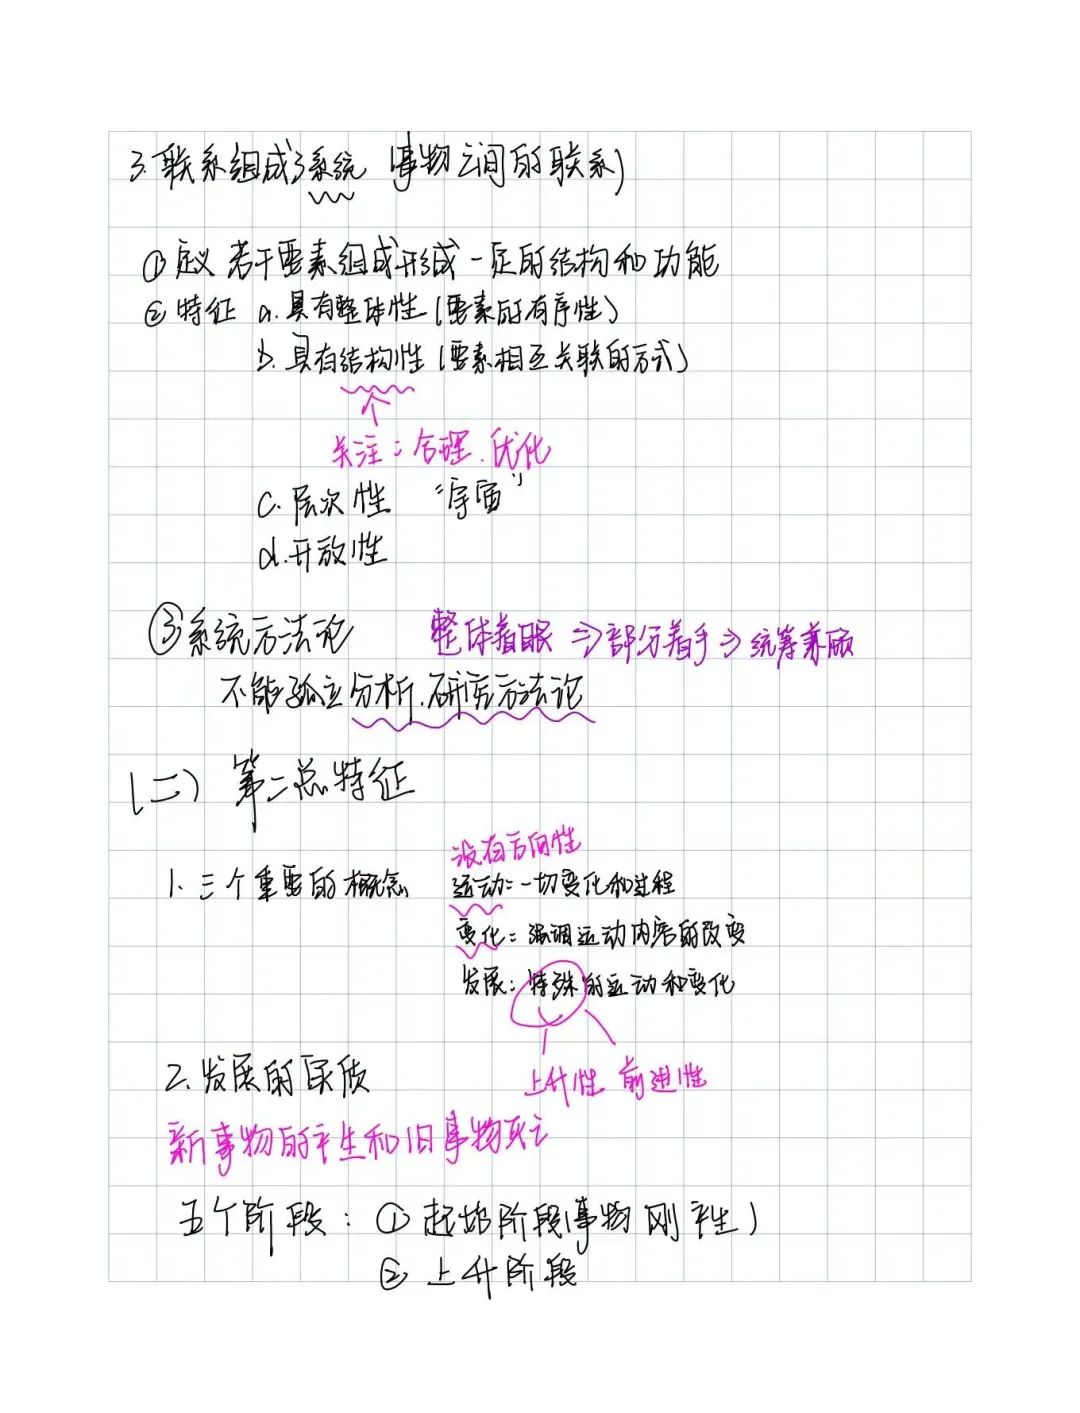 3.联系组成了系统(事物之间的联系)
①定义 若干要素组成形成一定的结构和功能
②特征 a.具有整体性(要素的有序性)
b.具有结构性(要素相互关联的方式)
关注:合理.优化
c.层次性 "宇宙"
d.开放性
③系统方法论 整体着眼⇒部分着手⇒统筹兼顾
不能孤立分析.研究方法论
(二) 第二点特征
没有方向性
1.三个重要的概念 运动:一切变化和过程
变化:强调运动内容的改变
发展:特殊的运动和变化
2.发展的实质 上升性 前进性
新事物的产生和旧事物灭亡
五个阶段:①起始阶段(事物刚产生)
②上升阶段